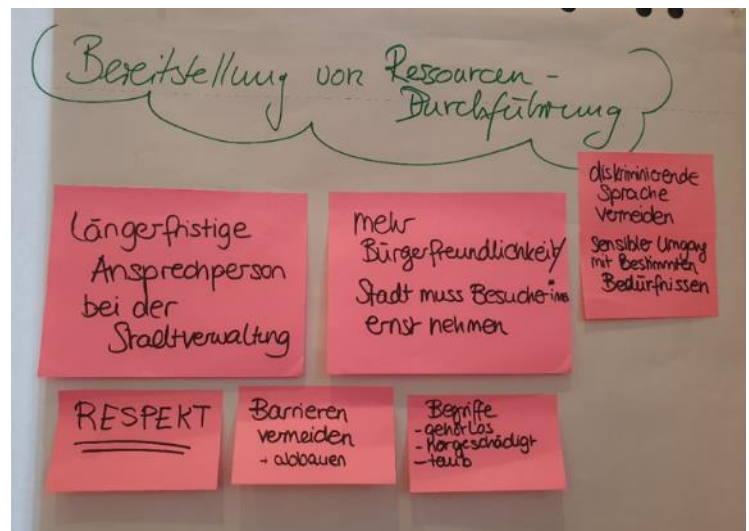 Bereitstellung von Ressourcen -
Durchführung
längerfristige
Ansprechperson
bei der
Stadtverwaltung
mehr
Bürgerfreundlichkeit/
Stadt muss Besucher·inns
ernst nehmen
diskriminierende
Sprache
vermeiden
sensibler Umgang
mit Bestimmten
Bedürfnissen
RESPEKT
Barrieren
vermeiden
+ abbauen
Begriffe
- gehörlos
- Hörgeschädigt
- taub